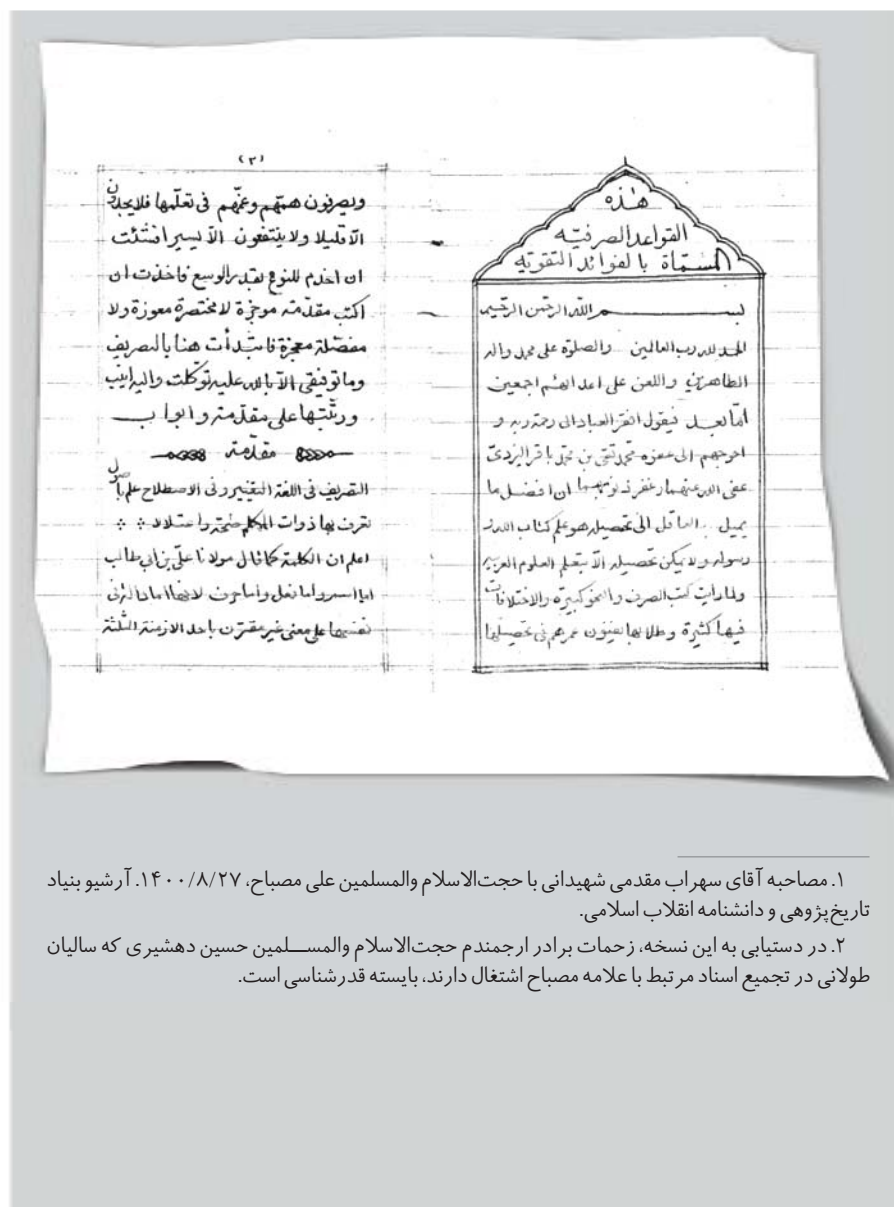 هذه
القواعد الصرفیّه
المسمّاة بالفوائد التقویّه
بسم الله الرّحمن الرّحیم
الحمد لله رب العالمین والصلوة علی محمد واله
الطاهرین واللعن علی اعدائهم اجمعین
امّا بعد فیقول افقر العباد الی رحمة ربه و
احوجهم الی عفوه محمد تقی بن محمد باقر الیزدیّ
عفی الله عنهما و غفر ذنوبهما ان افضل ما
یمیل العاقل الی تحصیله هو علم کتاب الله و
رسوله ولا یمکن تحصیله الّا بتعلم العلوم العربیه
ولما رایت کتب الصرف والنحو کبیرة والاختلافات
فیها کثیرة وطلابها یفنون عمرهم فی تحصیلها
(۲)
ویصرفون همتهم وعزمهم فی تعلّمها فلا یجدون
الّا قلیلا ولا ینتفعون الّا یسیرا فشئت
ان اخدم للنوع بقدر الوسع فاخذت ان
اکتب مقدّمة موجزة لا مختصرة معوزة ولا
مفصّلة معجزة فابتدأت هنا بالتصریف
وما توفیقی الّا بالله علیه توکلت والیه انیب
ورتّبتها علی مقدّمة وابواب
مقدّمة
التصریف فی اللغة التغییر وفی الاصطلاح علم باصول
تعرف بها ذوات الکلم صحّة واعتلالا
اعلم ان الکلمة کما قال مولانا علیّ بن ابی طالب
اما اسم واما فعل واما حرف لانها اما دالة فی
نفسها علی معنی غیر مقترن باحد الازمنة الثلثة
۱. مصاحبه آقای سهراب مقدمی شهیدانی با حجت‌الاسلام والمسلمین علی مصباح، ۱۴۰۰/۸/۲۷. آرشیو بنیاد
تاریخ‌پژوهی و دانشنامه انقلاب اسلامی.
۲. در دستیابی به این نسخه، زحمات برادر ارجمندم حجت‌الاسلام والمســلمین حسین دهشیری که سالیان
طولانی در تجمیع اسناد مرتبط با علامه مصباح اشتغال دارند، بایسته قدرشناسی است.